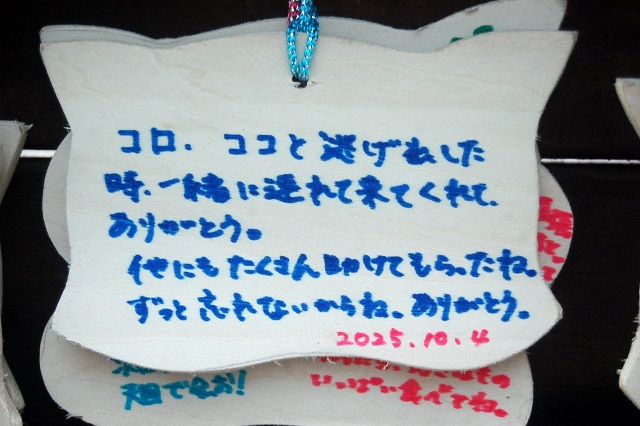 コロ、ココと逃げ出した
時、一緒に連れて来てくれて、
ありがとう。
他にもたくさん助けてもらったね。
ずっと忘れないからね。ありがとう。
2025.10.4
いっぱい食べてね。